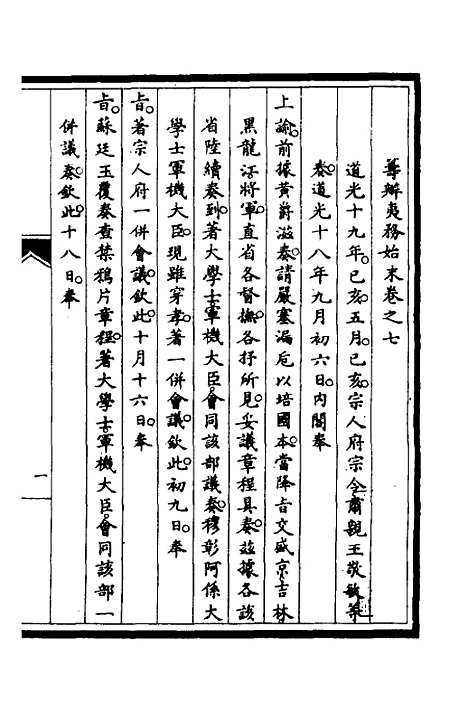 籌辦夷務始末卷之七
道光十九年。己亥。五月。己亥。宗人府宗令。肅親王敬敏等
奏。道光十八年九月初六日。內閣奉
上諭。前據黃爵滋奏。請嚴塞漏卮以培國本。當降旨交盛京吉林
黑龍江將軍。直省各督撫。各抒所見。妥議章程具奏。茲據各該
省陸續奏到。著大學士。軍機大臣。會同該部議奏。穆彰阿係大
學士軍機大臣。現雖穿孝。著一併會議。欽此。初九日。奉
旨。著宗人府一併會議。欽此。十月十六日。奉
旨。蘇廷玉覆奏查禁鴉片章程。著大學士。軍機大臣。會同該部一
併議奏。欽此。十八日。奉
一